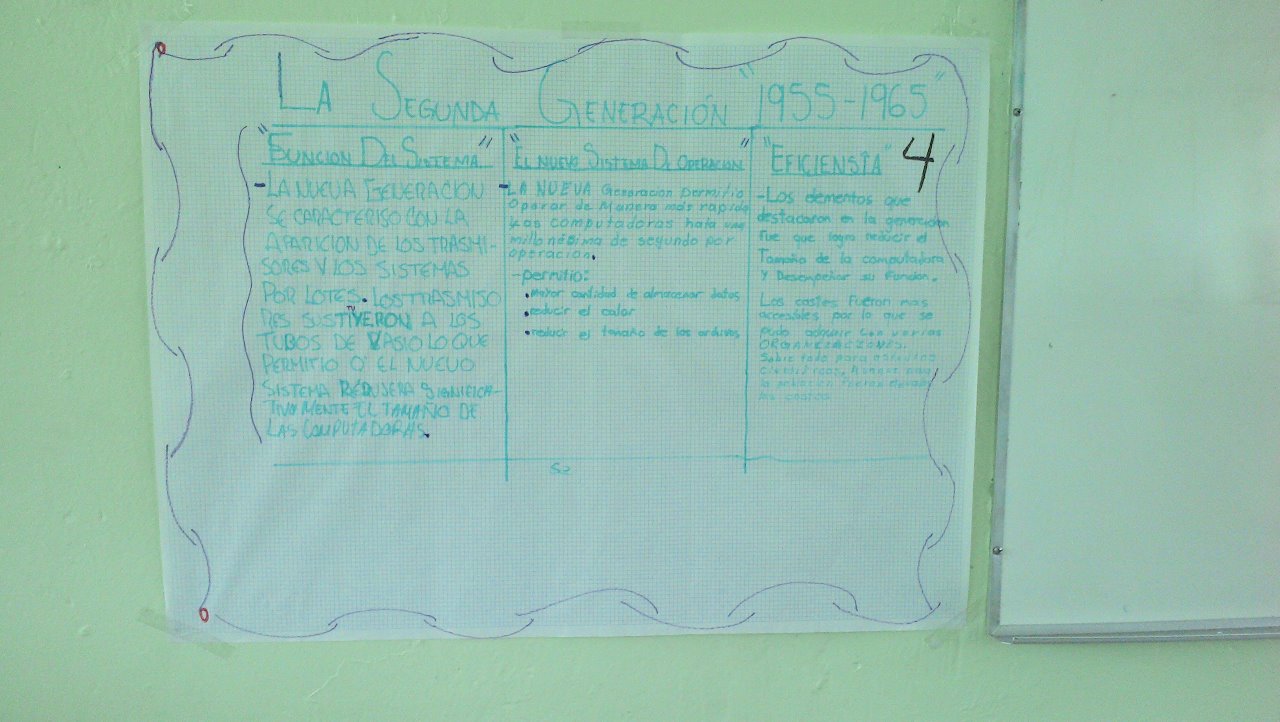 LA SEGUNDA GENERACIÓN "1955-1965"
"FUNCION DEL SISTEMA"
-LA NUEVA GENERACION
SE CARACTERISO CON LA
APARICION DE LOS TRASMI-
SORES Y LOS SISTEMAS
POR LOTES. LOS TRASMISO
RES SUSTITUYERON A LOS
TUBOS DE VASIO LO QUE
PERMITIO O EL NUEVO
SISTEMA REDUJERA SIGNIFICA-
TIVAMENTE EL TAMAÑO DE
LAS COMPUTADORAS.
"EL NUEVO SISTEMA DE OPERACION"
-LA NUEVA Generacion permitio
Operar de Manera más rapida
las computadoras hata una
millonésima de segundo por
operacion.
-permitio:
.Mayor cantidad de almacenar datos
.reducir el calor
.reducir el tamaño de los archivos
"EFICIENSÍA" 4
-Los elementos que
destacaron en la generacion
fue que logro reducir el
Tamaño de la computadora
Y Desempeñar su funcion.
Los costes fueron mas
accesibles por lo que se
pudo adquirir con varias
ORGANIZACIONES.
Sobre todo para
cientificos, Aunque para
la poblacion fueron elevados
los costos